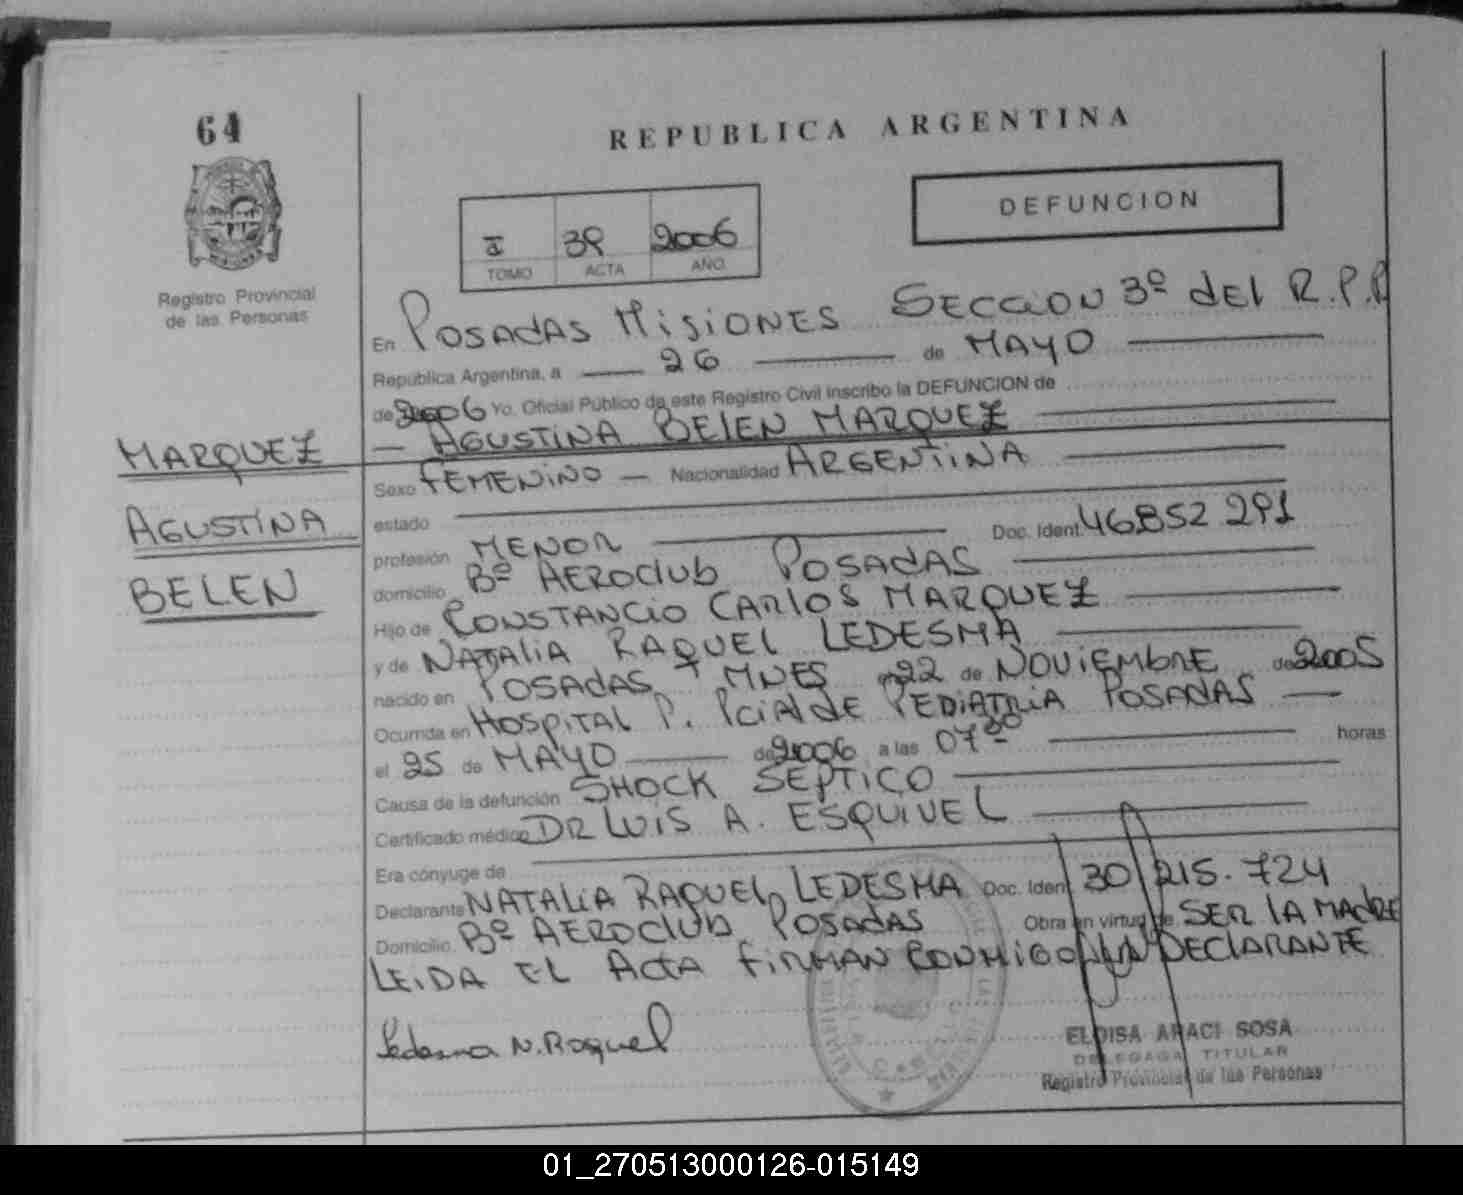 64
REPUBLICA ARGENTINA
DEFUNCION
I 39 2006
TOMO ACTA AÑO
Registro Provincial
de las Personas
En POSADAS MISIONES SECCION 3º dEl R.P.P
República Argentina, a 26 de MAYO
de 2006 Yo. Oficial Público de este Registro Civil inscribo la DEFUNCION de
AGUSTINA BELEN MARQUEZ
MARQUEZ
AGUSTINA
BELEN
Sexo FEMENINO Nacionalidad ARGENTINA
estado
profesión MENOR Doc. Ident. 46.852 291
domicilio Bº AEROClub POSADAS
Hijo de CONSTANCIO CARlOS MARQUEZ
y de NATALIA RAQUEL LEDESMA
nacido en POSADAS MNES en 22 de NOVIEMbRE de 2005
Ocurrida en HOSPITAL P. PciAl dE PEDIATRIA POSADAS
el 25 de MAYO de 2006 a las 07 horas
Causa de la defunción SHOCK SEPTICO
Certificado médico DR LUIS A. ESQUIVEL
Era cónyuge de
Declarante NATALIA RAQUEL LEDESMA Doc. Ident. 30 215.724
Domicilio Bº AEROClUb POSADAS Obra en virtud de SER lA MAdRE
LEIDA El ActA FIRMAN CONMIGO LA DEClARANTE
Ledesma N. Raquel
ELOISA ARACI SOSA
DELEGADA TITULAR
Registro Provincial de las Personas
01_270513000126-015149